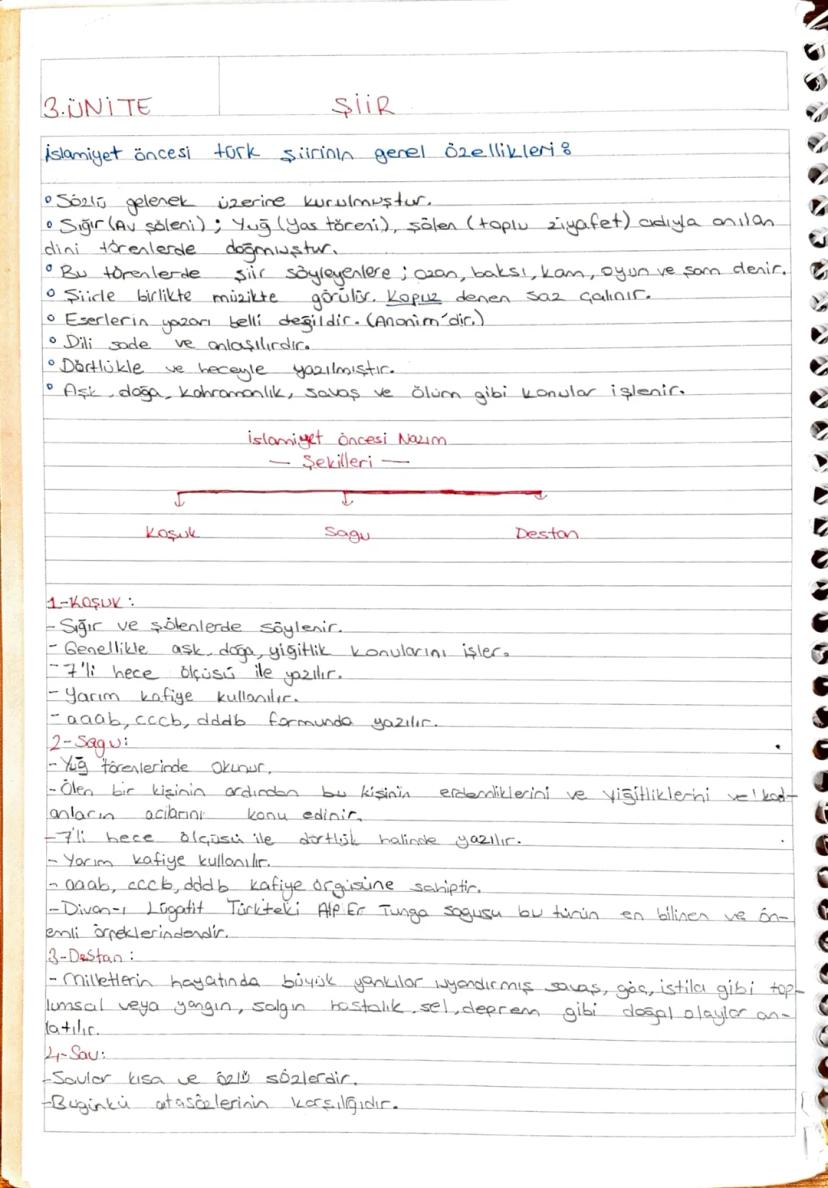 3.ÜNİTE ŞİİR
İslamiyet öncesi türk şiirinin genel özellikleri:
° Sözlü gelenek üzerine kurulmuştur.
° Sığır (Av şöleni) ; Yuğ (Yas töreni), şölen (toplu ziyafet) adıyla anılan
dini törenlerde doğmuştur.
° Bu törenlerde şiir söyleyenlere ; ozan, baksı, kam, oyun ve şam denir.
° Şiirle birlikte müzikte görülür. Kopuz denen saz çalınır.
° Eserlerin yazarı belli değildir. (Anonim'dir.)
° Dili sade ve anlaşılırdır.
° Dörtlükle ve heceyle yazılmıştır.
° Aşk, doğa, kahramanlık, savaş ve ölüm gibi konular işlenir.
İslamiyet öncesi Nazım
— Şekilleri —
Koşuk Sagu Destan
1-Koşuk :
- Sığır ve şölenlerde söylenir.
- Genellikle aşk, doğa, yiğitlik konularını işler.
- 7'li hece ölçüsü ile yazılır.
- Yarım kafiye kullanılır.
- aaab, cccb, dddb formunda yazılır.
2-Sagu:
- Yuğ törenlerinde okunur.
- Ölen bir kişinin ardından bu kişinin erdemliklerini ve yiğitliklerini ve
anların acılarını konu edinir.
- 7'li hece ölçüsü ile dörtlük halinde yazılır.
- Yarım kafiye kullanılır.
- aaab, cccb, dddb kafiye örgüsüne sahiptir.
- Divan-ı Lügatit Türkteki Alp Er Tunga sagusu bu türün en bilinen ve ön-
emli örneklerindendir.
3-Destan :
- Milletlerin hayatında büyük yankılar uyandırmış savaş, göç, istila gibi top-
lumsal veya yangın, salgın hastalık, sel, deprem gibi doğal olaylar an-
latılır.
4-Sav:
- Savlar kısa ve özlü sözlerdir.
- Bugünkü atasözlerinin karşılığıdır.